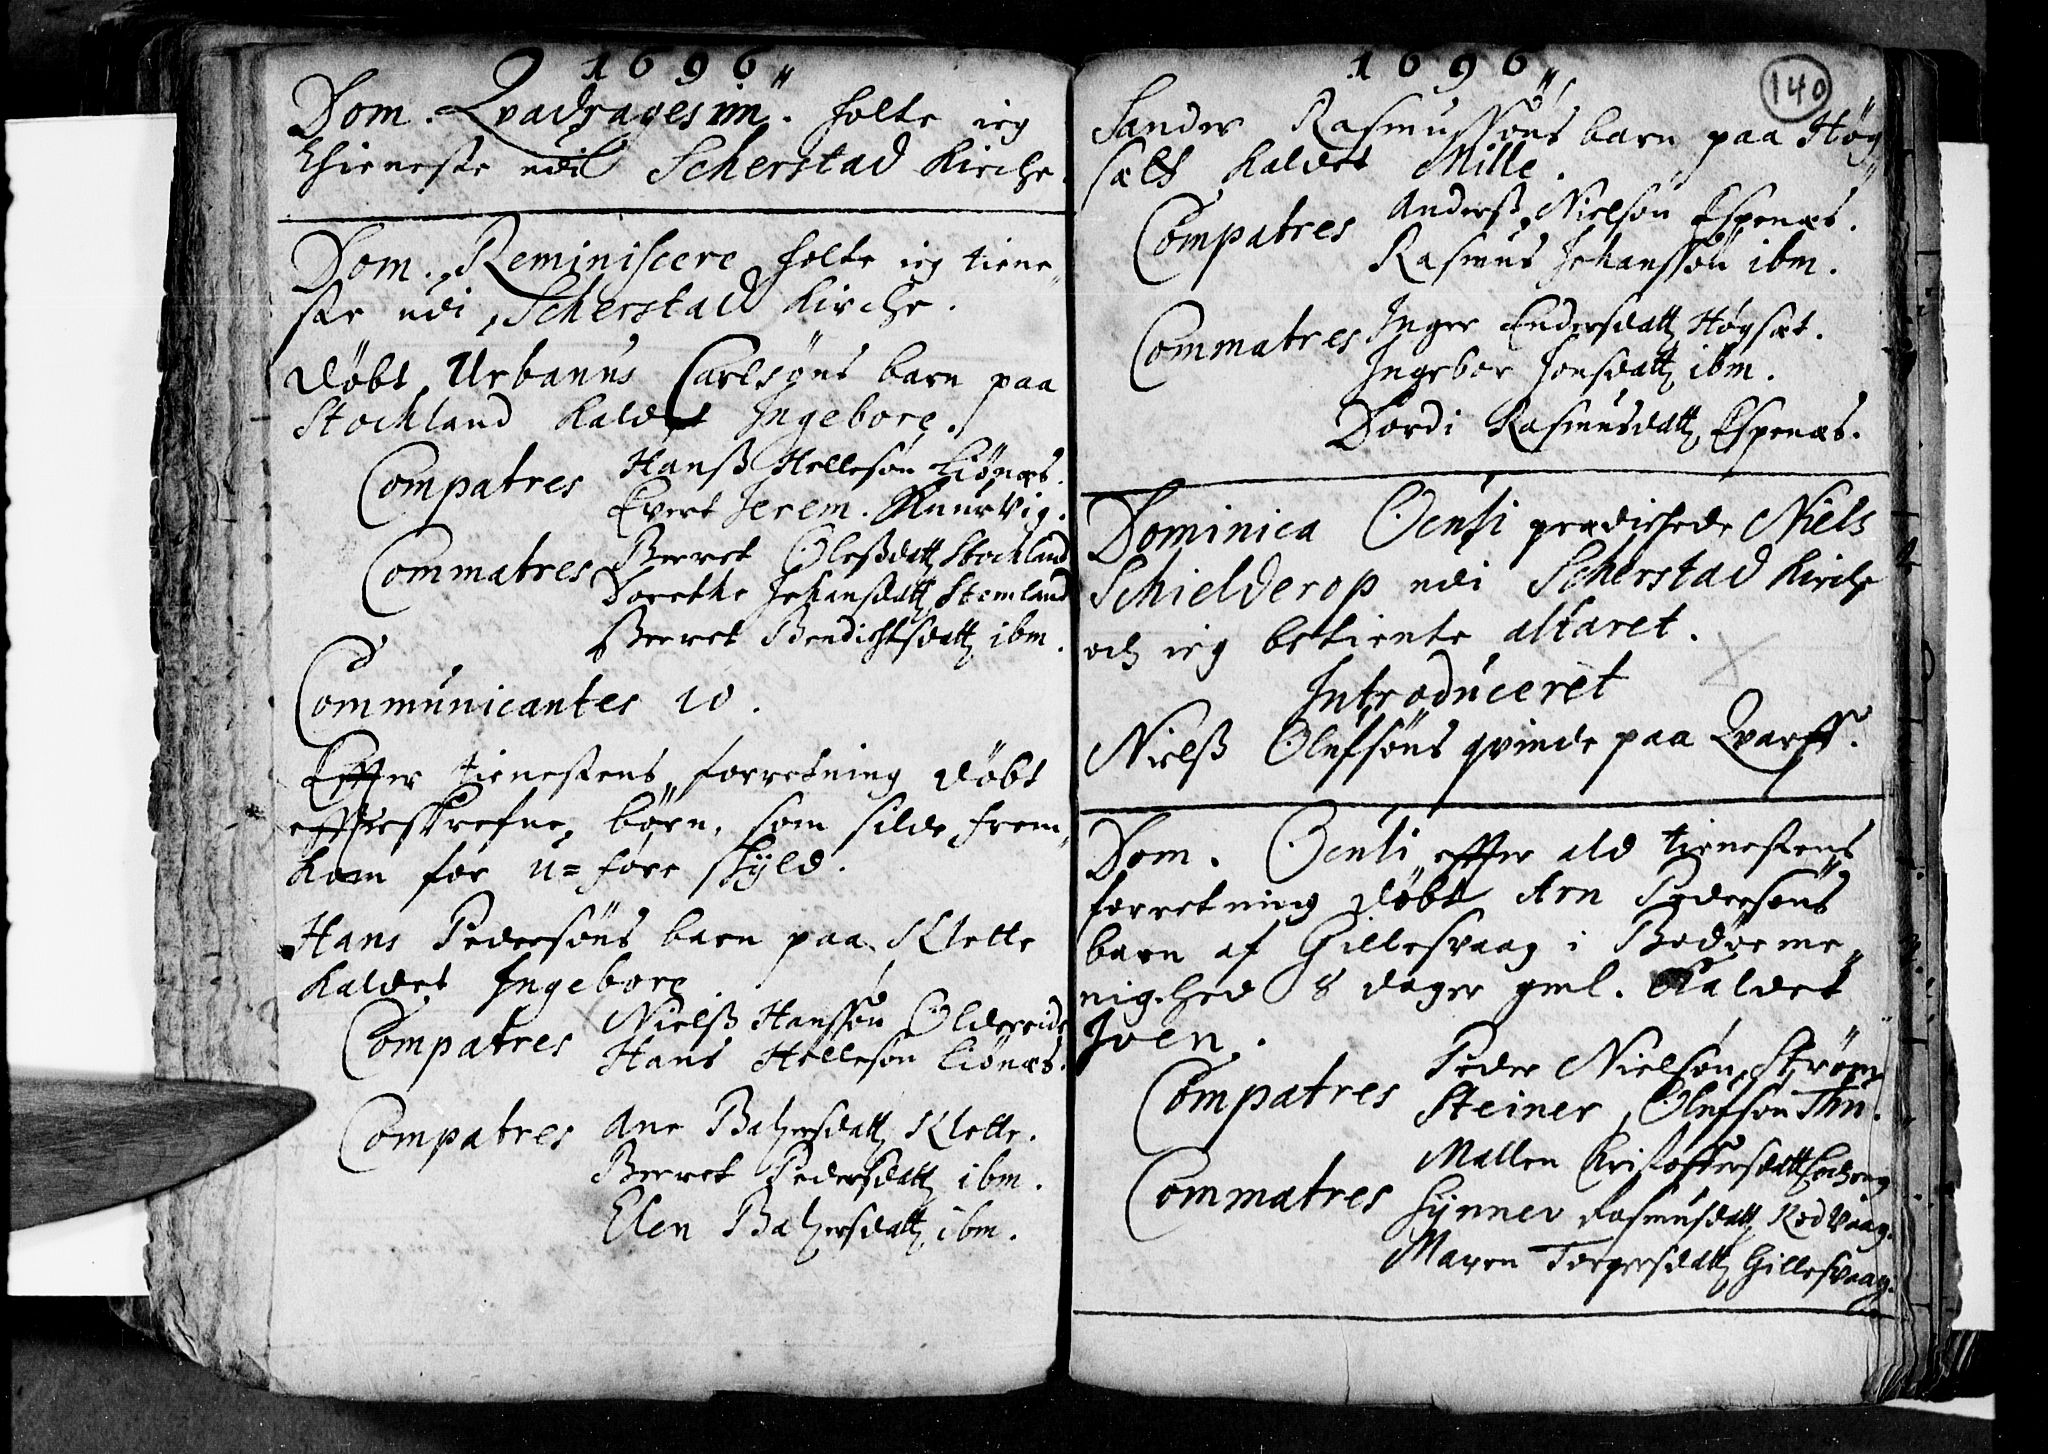 1696
Dom. Qvadragesim. holte ieg
thieneste udi Scherstad Kirche.
Dom. Reminiscere holte ieg tiene,,
ste udi Scherstad Kirche.
Døbt Urbanus Carlsøns barn paa
Stockland kaldet Ingeborg.
Compatres Hanß Hellesøn Liønæs.
Evert Jerem. Knurvig.
Commatres Berret Oleßdatt Stockland
Dorethe Johansdatt Stemland
Berret Bendichtsdatt ibm.
Communicantes 10.
Effter tienestens forretning døbt
effterskrefne børn, som silde frem,,
kom for u=føre skyld.
Hans Pedersøns barn paa Klette
kaldet Ingeborg
Compatres Nielß Hansøn Oldereide
Hans Hellesøn Liønæs.
Compatres Ane Baltzersdatt Klette.
Berret Pedersdatt ibm.
Elen Baltzersdatt ibm.
1696
140
Sander Rasmussøns barn paa Høg,,
sæt kaldet Mille.
Compatres Anderß Nielsøn Espenæs.
Rasmus Johansøn ibm.
Commatres Inger Endersdatt Høgsæt.
Ingebor Jonsdatt ibm.
Dordi Rasmusdatt Espenæs.
Dominica Oculi prædichede Niels
Schielderop udi Scherstad Kirche
och ieg betiente altaret.
Introduceret
Nielß Olufsøns qvinde paa Qvarff.
Dom. Oculi effter ald tienestens
forretning døbt Arn Pedersøns
barn af Gillesvaag i Bodøe me,,
nighed 8 dager gml. kaldet
Joen.
Compatres Peder Nielsøn, Strøm
Steiner Olufsøn Thu.
Commatres Mallen Kristoffersdatt
Synnev Rasmusdatt Rødvaag.
Maren Torgersdatt Gillesvaag.